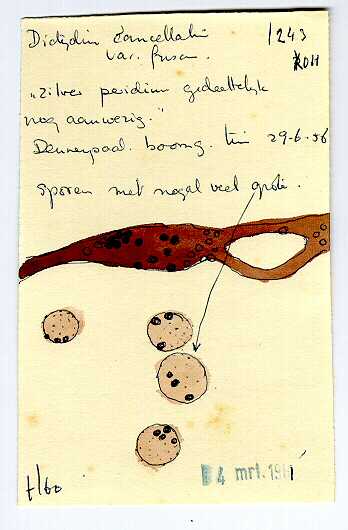 Dictydium cancellati 1243
var. fusc. KOH
„zilver peridium gedeeltelijk
nog aanwezig."
Dennepaal. boomg. tuin 29-6-56
sporen met nogal veel grote.
t/60 4 mrt. 19